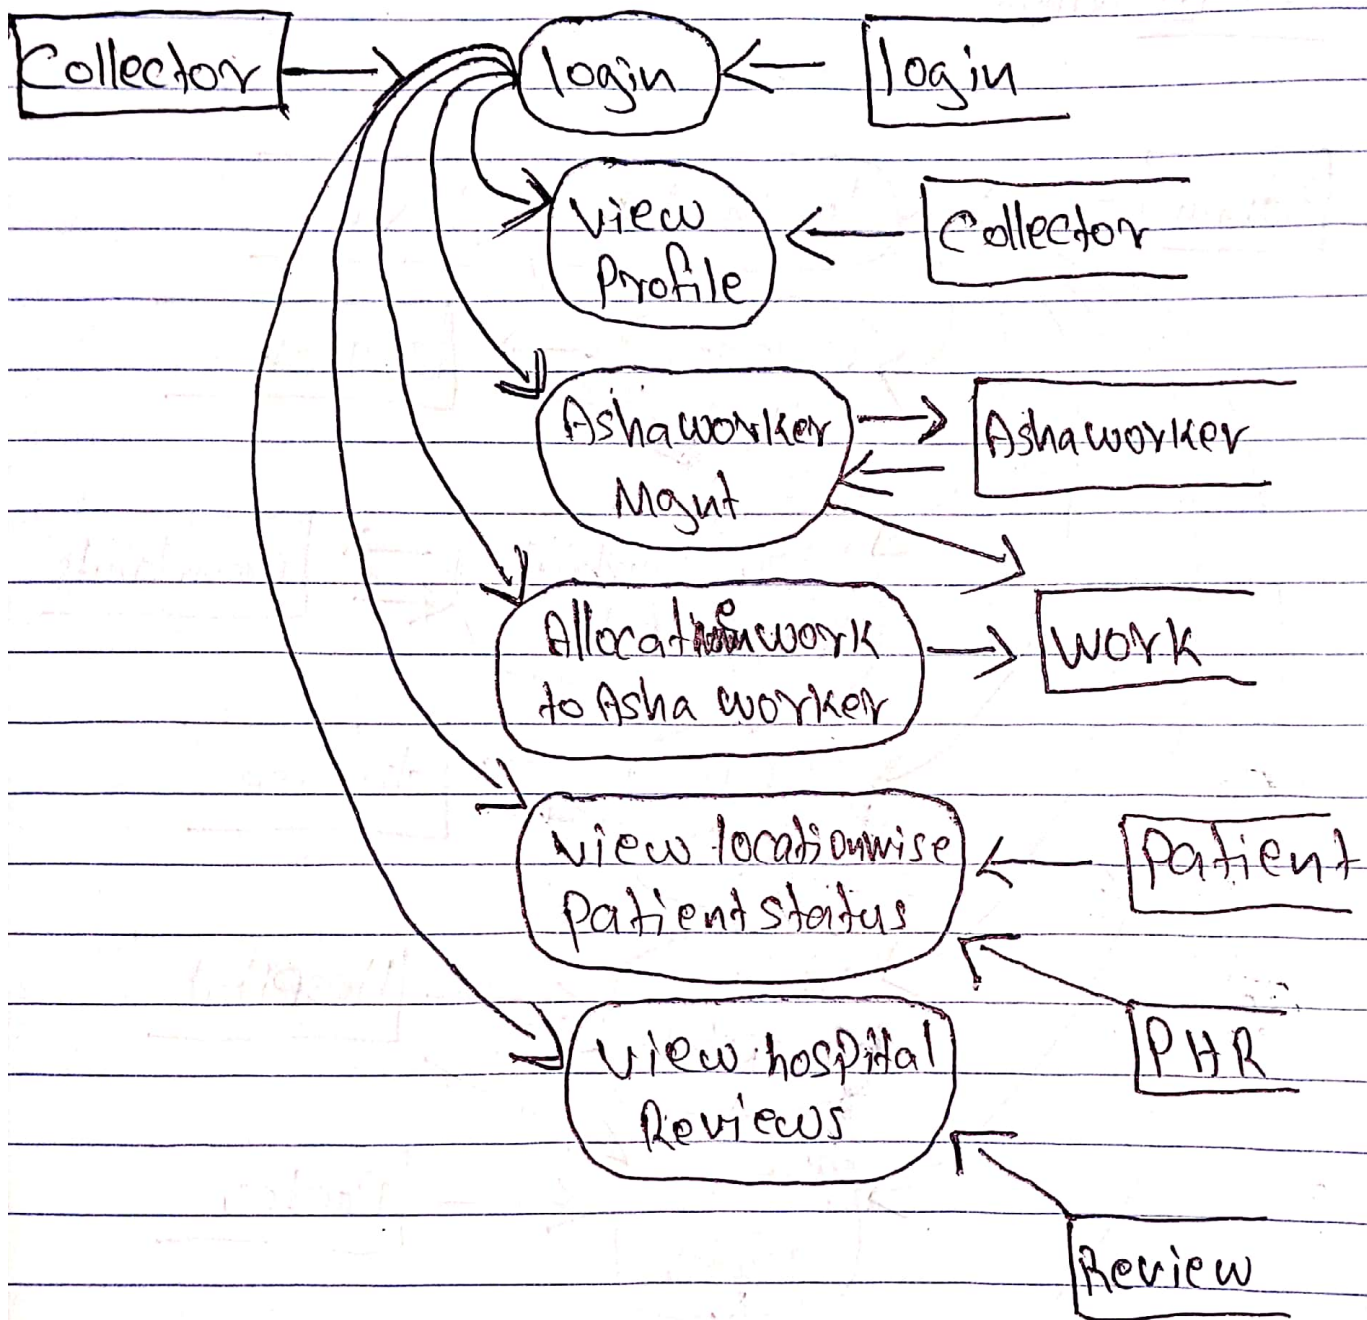 Collector
login
login
View
Profile
Collector
Ashaworker
Mgnt
Ashaworker
Allocate work
to Asha worker
work
view locationwise
patient status
patient
PHR
view hospital
Reviews
Review